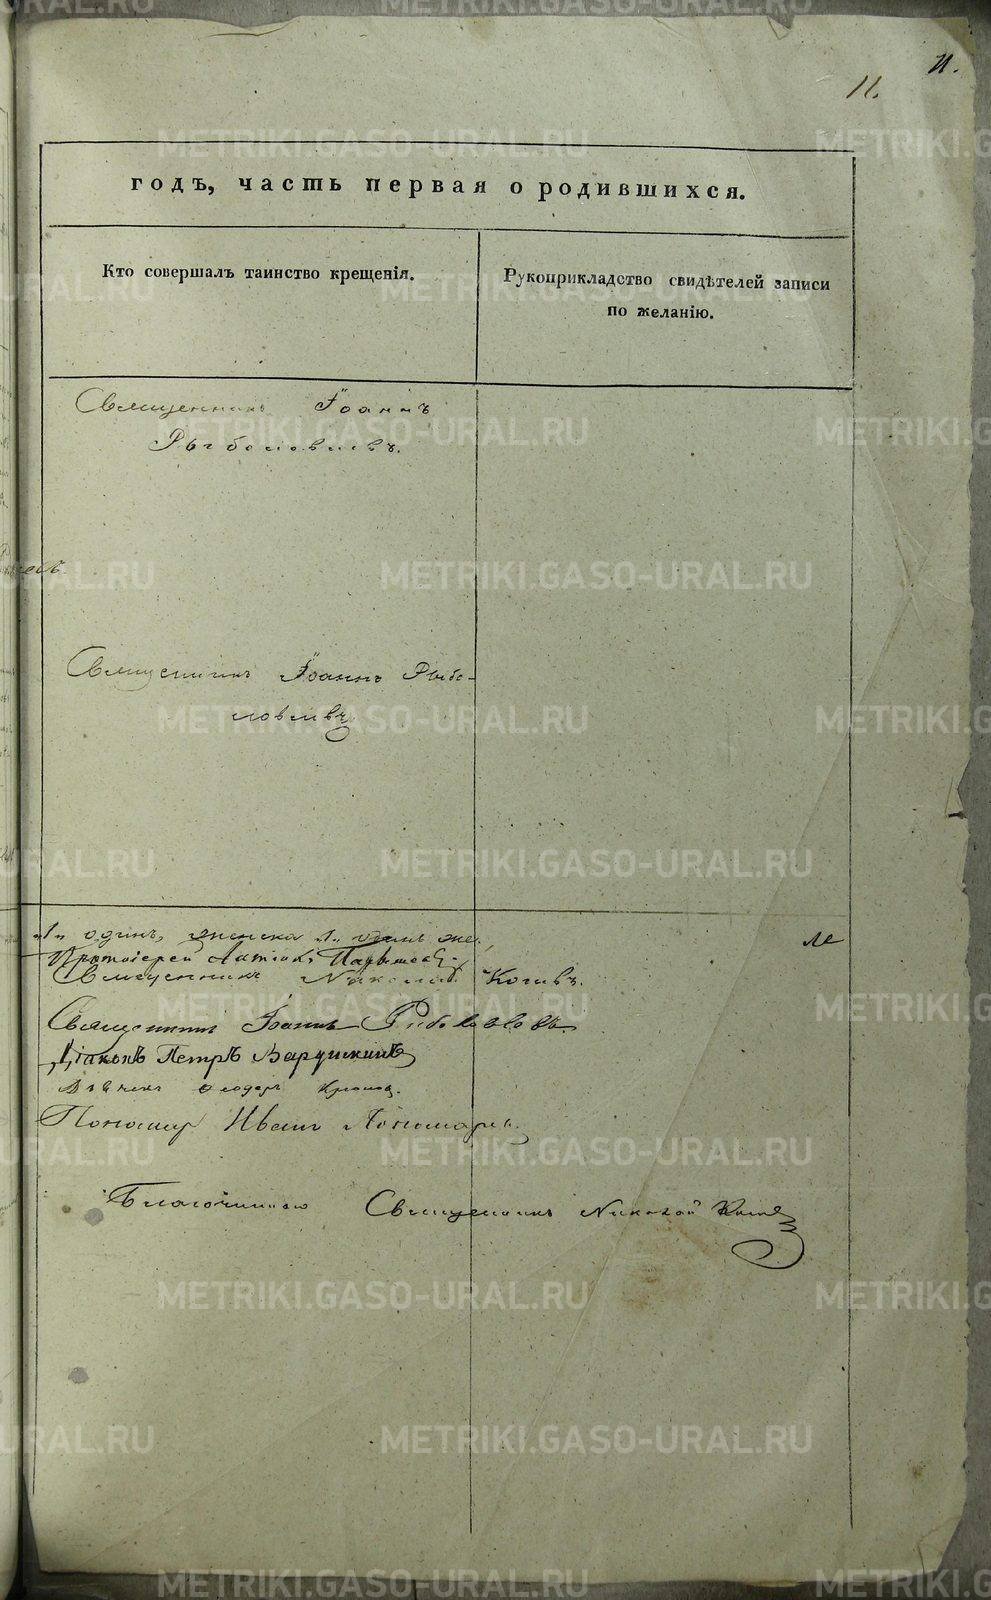 11.
11.
годъ, часть первая о родившихся.
Кто совершалъ таинство крещенія.
Рукоприкладство свидѣтелей записи
по желанію.
Священникъ Іоаннъ
Рыболовлевъ.
Священникъ Іоаннъ Рыбо-
ловлевъ
„1„ одинъ, женска „1„ одинъ же.
Протоіерей
Священникъ Николай
Священникъ Іоаннъ Рыболовлевъ
Діаконъ Петръ Варушкинъ
Ѳеодоръ
Пономарь Иванъ Пономаревъ
Благочинный Священникъ Николай
METRIKI.GASO-URAL.RU